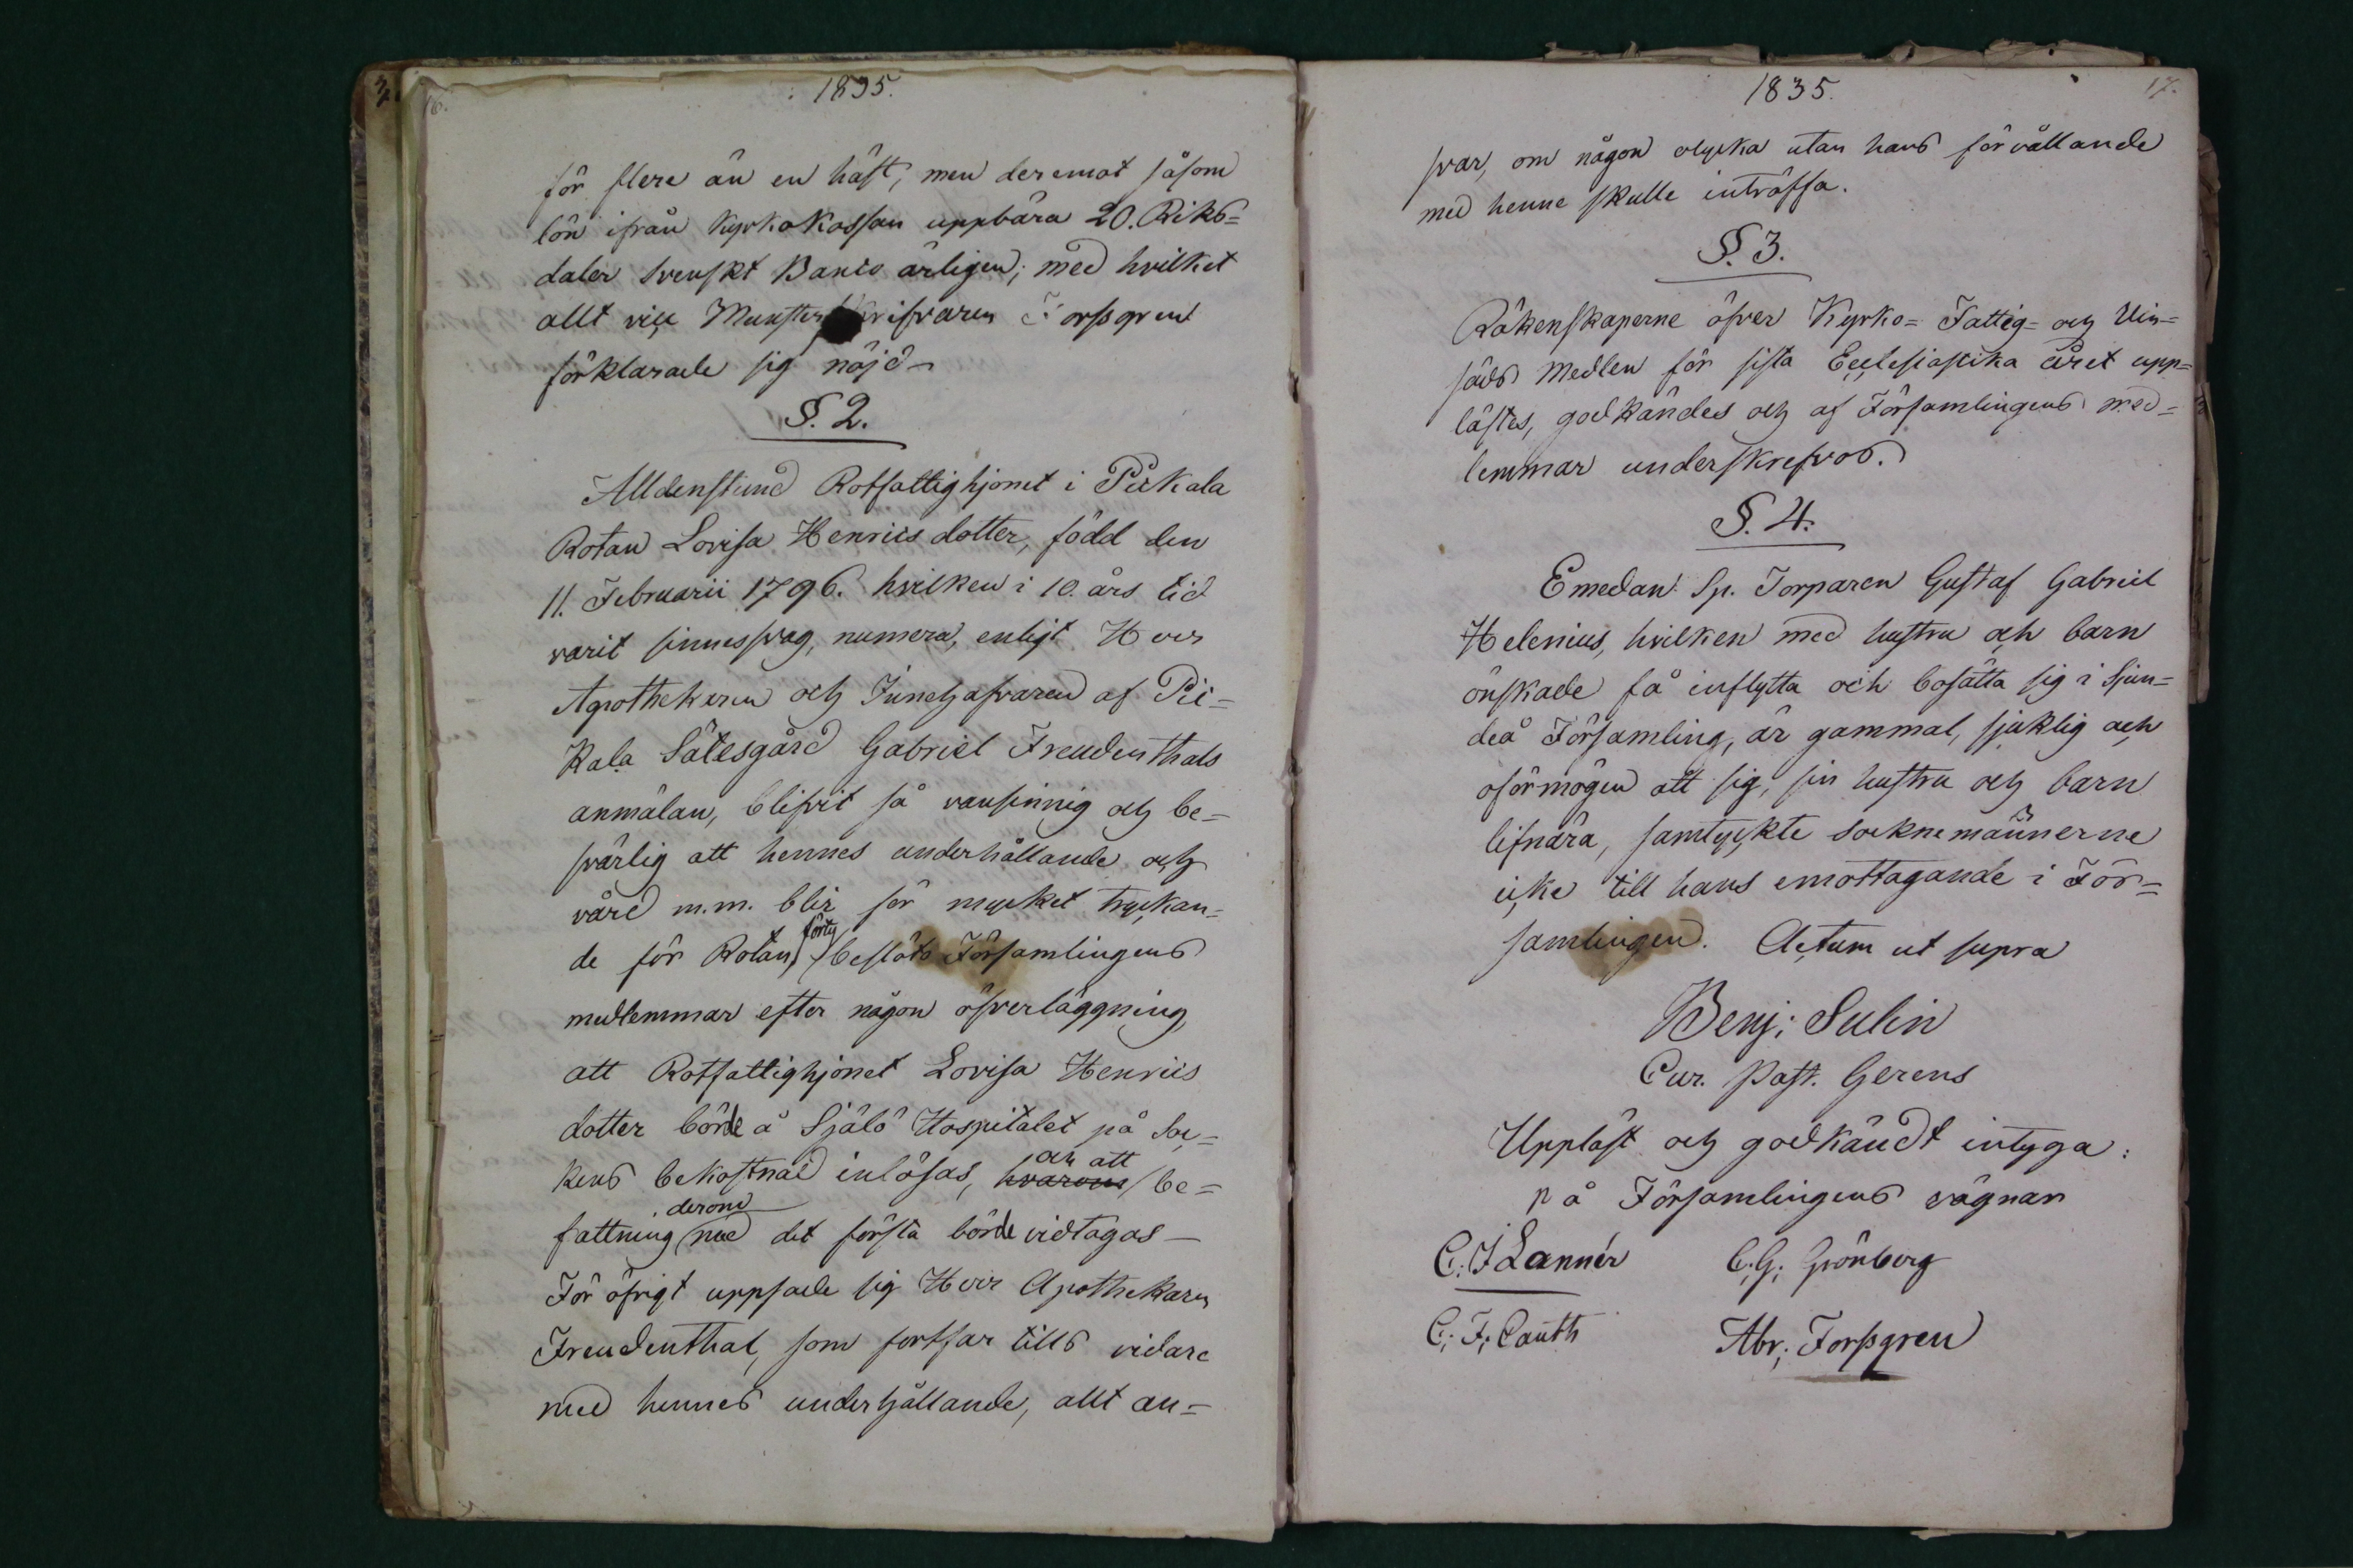 16.
1835.
för flere än en häst, men deremot såsom
lön ifrån Kyrkokassan uppbära 20. Riks=
daler Svenskt Banco årligen; med hvilket
allt vice Munster skrifvaren Forsgren
förklarade sig nöjd -
§. 2.
Alldenstund Rotfattighjonet i Pickala
Rotan Lovisa Henrics dotter, född den
11. Februarii 1796. hvilken i 10. års tid
varit sinnessvag, numera, enligt Herr
Apothekaren och Innehafvaren af Pic=
kala Sätesgård Gabriel Freudenthals
anmälan, blifvit så vansinnig och be=
svärlig att hennes underhållande och
vård m.m. blir för mycket tryckan=
de för Rotan, förty beslöts Församlingens
medlemmar efter någon öfverläggning,
att Rotfattighjonet Lovisa Henrics
dotter börde å Själö Hospitalet på Soc=
kens bekostnad inlösas, hvarom och att be=
fattning derom med det första börde vidtagas —
För öfrigt uppsade sig Herr Apothekaren
Freudenthal, som fortfar tills vidare
med hennes underhållande, allt an=
17.
1835.
svar, om någon olycka utan hans förvållande
med henne skulle inträffa.
§. 3.
Räkenskaperne öfver Kyrko= Fattig= och Uin=
säds Medlen för sista Ecclesiastika året upp=
lästes, godkändes och af Församlingens med=
lemmar underskrefvos.
§. 4.
Emedan Sp. Torparen Gustaf Gabriel
Helenius, hvilken med hustru och barn
önskade få inflytta och bosätta sig i Sjun=
deå Församling, är gammal, sjuklig och
oförmögen att sig, sin hustru och barn
lifnära, samtyckte Socknemännerne
icke till hans emottagande i För=
samlingen. Actum ut supra
Benj: Sulin
Cur. Past. Gerens
Uppläst och godkändt intyga:
på Församlingens vägnar
C. J Lannér C. G. Grönberg
C. F. Cauth Abr; Forsgren